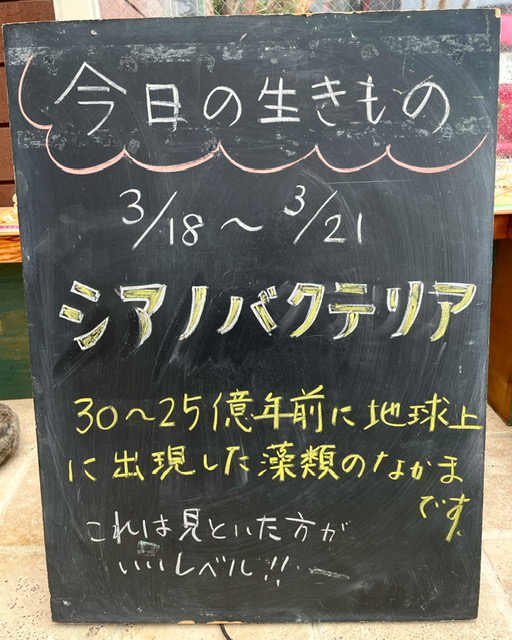 今日の生きもの
3/18～3/21
シアノバクテリア
30～25億年前に地球上
に出現した藻類のなかま
です。
これは見といた方が
いいレベル!!